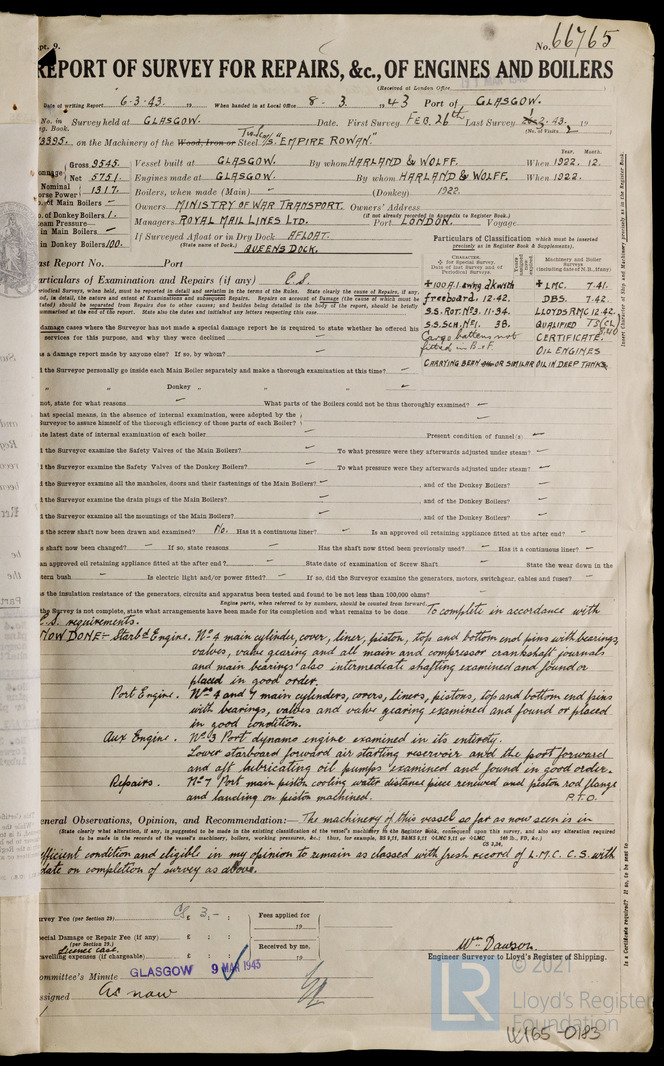 pt. 9.
No. 66765
REPORT OF SURVEY FOR REPAIRS, &c., OF ENGINES AND BOILERS
(Received at London Office
Date of writing Report 6-3-43. 19 When handed in at Local Office 8. 3. 1943 Port of GLASGOW.
No. in Survey held at GLASGOW. Date. First Survey FEB. 26th Last Survey 3. 43. 19
g. Book. (No. of Visits 2)
3395. on the Machinery of the Wood, Iron or Steel "EMPIRE ROWAN"
Gross 9545. Vessel built at GLASGOW. By whom HARLAND & WOLFF. When 1922. 12.
Year. Month.
Net 5751. Engines made at GLASGOW. By whom HARLAND & WOLFF. When 1922.
Nominal
orse Power 1317. Boilers, when made (Main) - (Donkey) 1922.
of Main Boilers - Owners MINISTRY OF WAR TRANSPORT. Owners' Address
(if not already recorded in Appendix to Register Book.)
of Donkey Boilers 1. Managers ROYAL MAIL LINES LTD. Port LONDON. Voyage
eam Pressure-
in Main Boilers - If Surveyed Afloat or in Dry Dock AFLOAT.
(State name of Dock.)
in Donkey Boilers 100. QUEENS DOCK.
Particulars of Classification which must be inserted
precisely as in Register Book & Supplements).
ast Report No. Port
articulars of Examination and Repairs (if any) C.S.
CHARACTER.
* for Special Survey.
Date of last Survey and of
Periodical Surveys.
Years assigned now expired
Machinery and Boiler
Surveys
(including date of N.B., if any)
+100A1 awng dk with + LMC. 7.41.
freeboard. 12.42. DBS. 7.42
S.S. ROT. No3. 11-34. LLOYDS RMC 12.42.
S.S. SCH. No1. 38. QUALIFIED TS(CL)
Cargo battens not CERTIFICATE.
fitted in B & F. OIL ENGINES
CARRYING BEAN OR SIMILAR OIL IN DEEP TANKS.
Insert Character of Ship and Machinery precisely as in the Register Book.
damage cases where the Surveyor has not made a special damage report he is required to state whether he offered his
services for this purpose, and why they were declined -
s a damage report made by anyone else? If so, by whom? -
d the Surveyor personally go inside each Main Boiler separately and make a thorough examination at this time? -
" " Donkey " " " " -
not, state for what reasons - What parts of the Boilers could not be thus thoroughly examined? -
hat special means, in the absence of internal examination, were adopted by the
Surveyor to assure himself of the thorough efficiency of those parts of each Boiler? -
te latest date of internal examination of each boiler Present condition of funnel(s) -
d the Surveyor examine the Safety Valves of the Main Boilers? - To what pressure were they afterwards adjusted under steam? -
d the Surveyor examine the Safety Valves of the Donkey Boilers? - To what pressure were they afterwards adjusted under steam? -
d the Surveyor examine all the manholes, doors and their fastenings of the Main Boilers? - , and of the Donkey Boilers? -
d the Surveyor examine the drain plugs of the Main Boilers? - , and of the Donkey Boilers? -
d the Surveyor examine all the mountings of the Main Boilers? - , and of the Donkey Boilers? -
s the screw shaft now been drawn and examined? No. Has it a continuous liner? - Is an approved oil retaining appliance fitted at the after end? -
s shaft now been changed? - If so, state reasons - Has the shaft now fitted been previously used? - Has it a continuous liner? -
an approved oil retaining appliance fitted at the after end? - State date of examination of Screw Shaft - State the wear down in the
tern bush - Is electric light and/or power fitted? - If so, did the Surveyor examine the generators, motors, switchgear, cables and fuses? -
s the insulation resistance of the generators, circuits and apparatus been tested and found to be not less than 100,000 ohms? -
Engine parts, when referred to by numbers, should be counted from forward.
the Survey is not complete, state what arrangements have been made for its completion and what remains to be done To complete in accordance with
C.S. requirements.
NOW DONE:- Starbd Engine. No 4 main cylinder, cover, liner, piston, top and bottom end pins with bearings,
valves, valve gearing and all main and compressor crankshaft journals
and main bearings also intermediate shafting examined and found or
placed in good order.
Port Engine. Nos 4 and 7 main cylinders, covers, liners, pistons, top and bottom end pins
with bearings, valves and valve gearing examined and found or placed
in good condition.
Aux Engine. No 3 Port dynamo engine examined in its entirety.
Lower starboard forward air starting reservoir and the port forward
and aft lubricating oil pumps examined and found in good order.
Repairs. No 7 Port main piston cooling water distance piece renewed and piston rod flange
and landing on piston machined. P.T.O.
eneral Observations, Opinion, and Recommendation:- The machinery of this vessel so far as now seen is in
(State clearly what alteration, if any, is suggested to be made in the existing classification of the vessel's machinery in the Register Book, consequent upon this survey, and also any alteration required
to be made in the records of the vessel's machinery, boilers, working pressures, &c.: thus, for example, BS 9,11, B&MS 9,11 LMC 9,11 or LMC 140 lb., FD, &c.)
CS 3,34,
efficient condition and eligible in my opinion to remain as classed with fresh record of L.M.C. C.S. with
date on completion of survey as above.
urvey Fee (per Section 29) CS £ 3 : - : Fees applied for
19
ecial Damage or Repair Fee (if any) £ : :
(per Section 29.)
Received by me,
avelling expenses (if chargeable) £ : : 19
Wm Dawson.
Engineer Surveyor to Lloyd's Register of Shipping.
ommittee's Minute GLASGOW 9 MAR 1943
ssigned As now
Is a Certificate required? If so, to be sent to
LR
© 2021
Lloyd's Register
Foundation
W165-0183